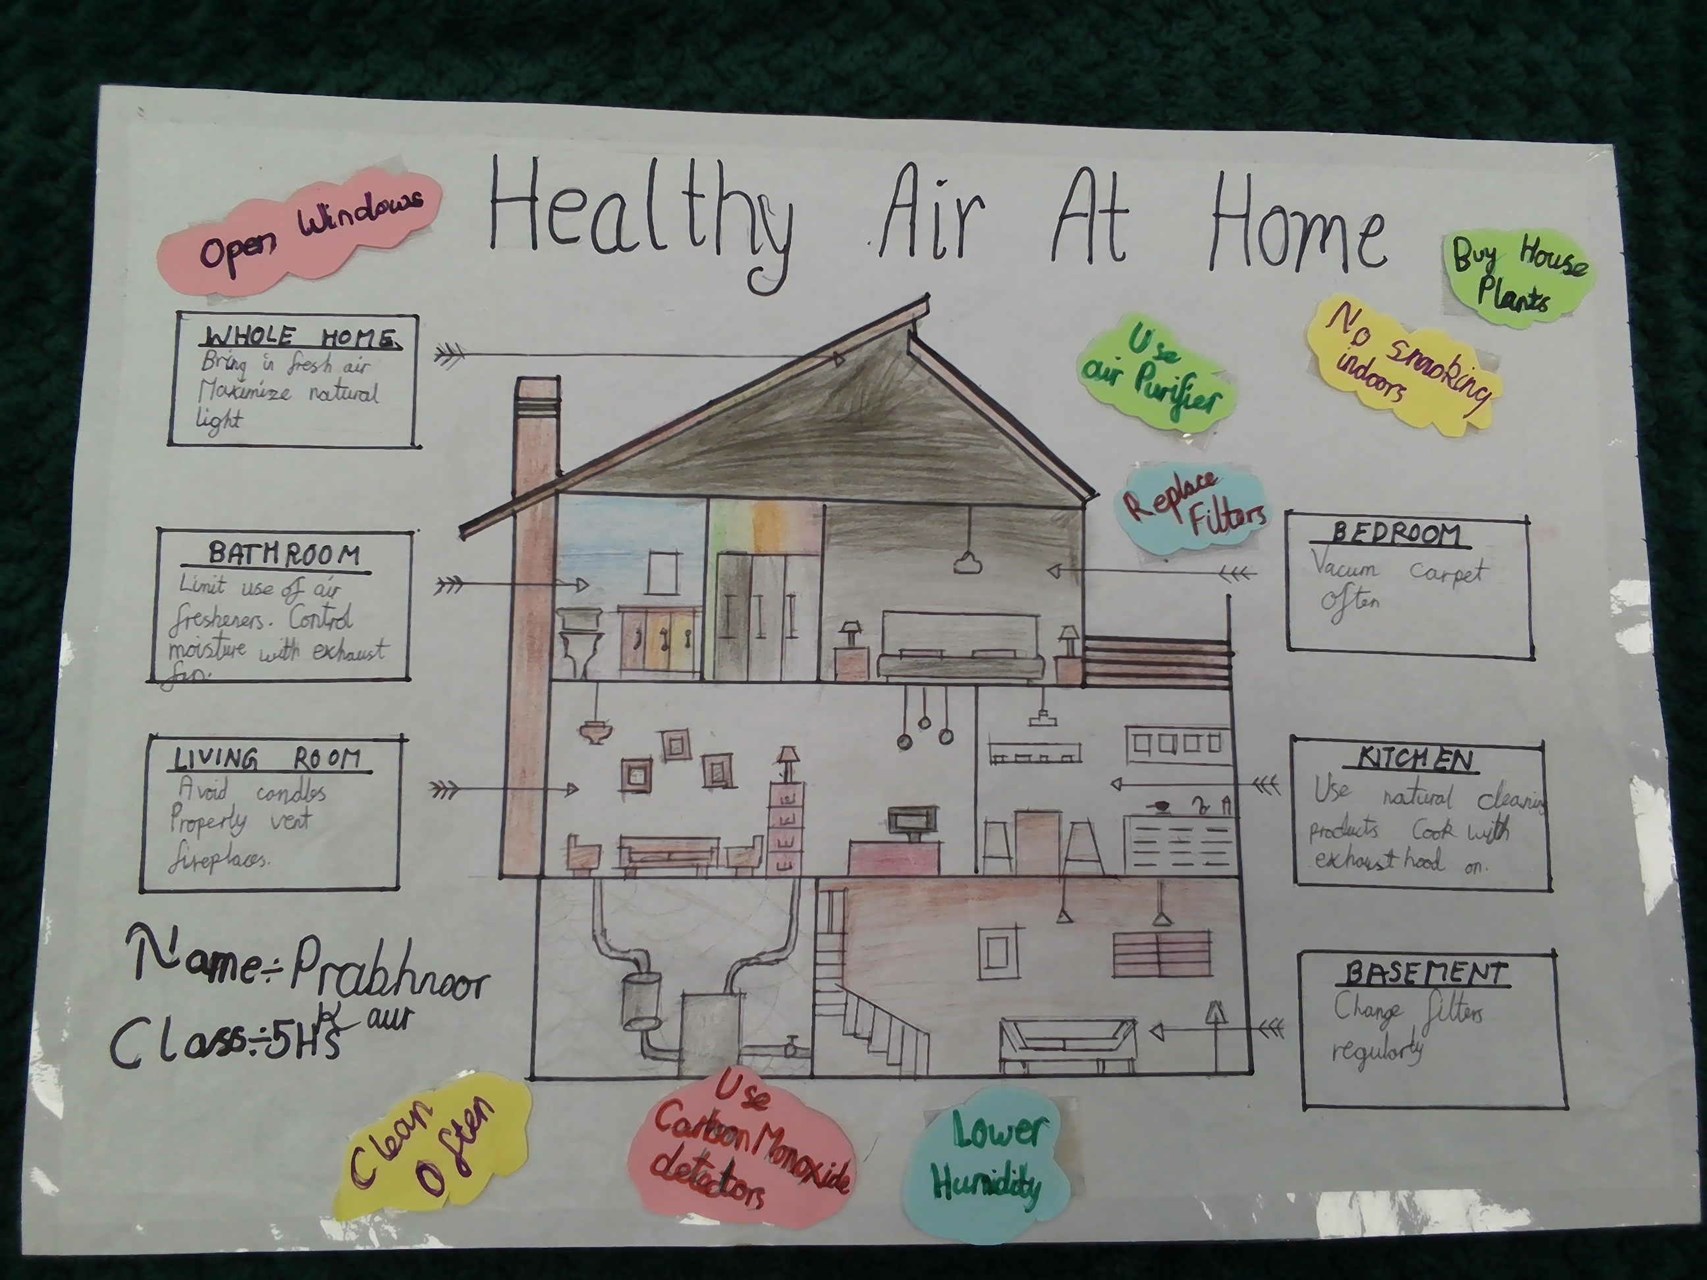 Healthy Air At Home
Open Windows
Buy House
Plants
Use
air Purifier
No smoking
indoors
Replace
Filters
WHOLE HOME
Bring in fresh air
Maximize natural
light
BATHROOM
Limit use of air
fresheners. Control
moisture with exhaust
fan.
LIVING ROOM
Avoid candles
Properly vent
fireplaces.
BEDROOM
Vacum carpet
often
KITCHEN
Use natural cleaning
products Cook with
exhaust hood on.
BASEMENT
Change filters
regularly
Name:- Prabhnoor
Kaur
Class:- 5Hs
Clean
Often
Use
Carbon Monoxide
detectors
Lower
Humidity